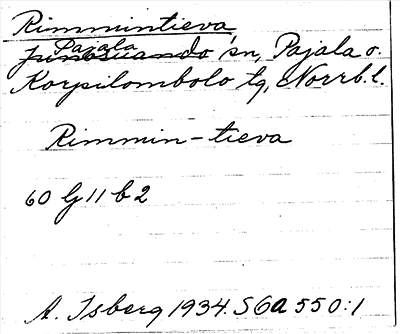 Rimmintieva
Pajala
Junosuando sn, Pajala o.
Korpilombolo tg, Norrb. l.
Rimmin-tieva
60 G 11 b 2
A. Isberg 1934. S6a 550:1